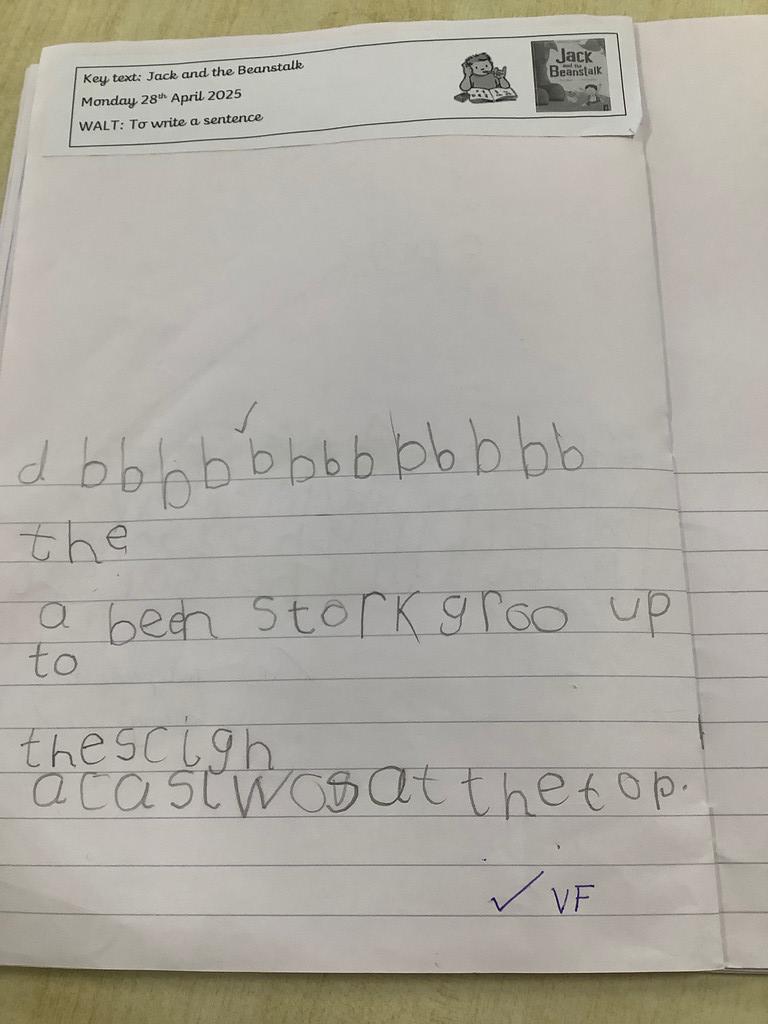 Key text: Jack and the Beanstalk
Monday 28th April 2025
WALT: To write a sentence
Jack and the Beanstalk
d b b b b b b b b b b b b b
the
a been stork groo up
to
thescigh
acaslwosatthetop.
VF